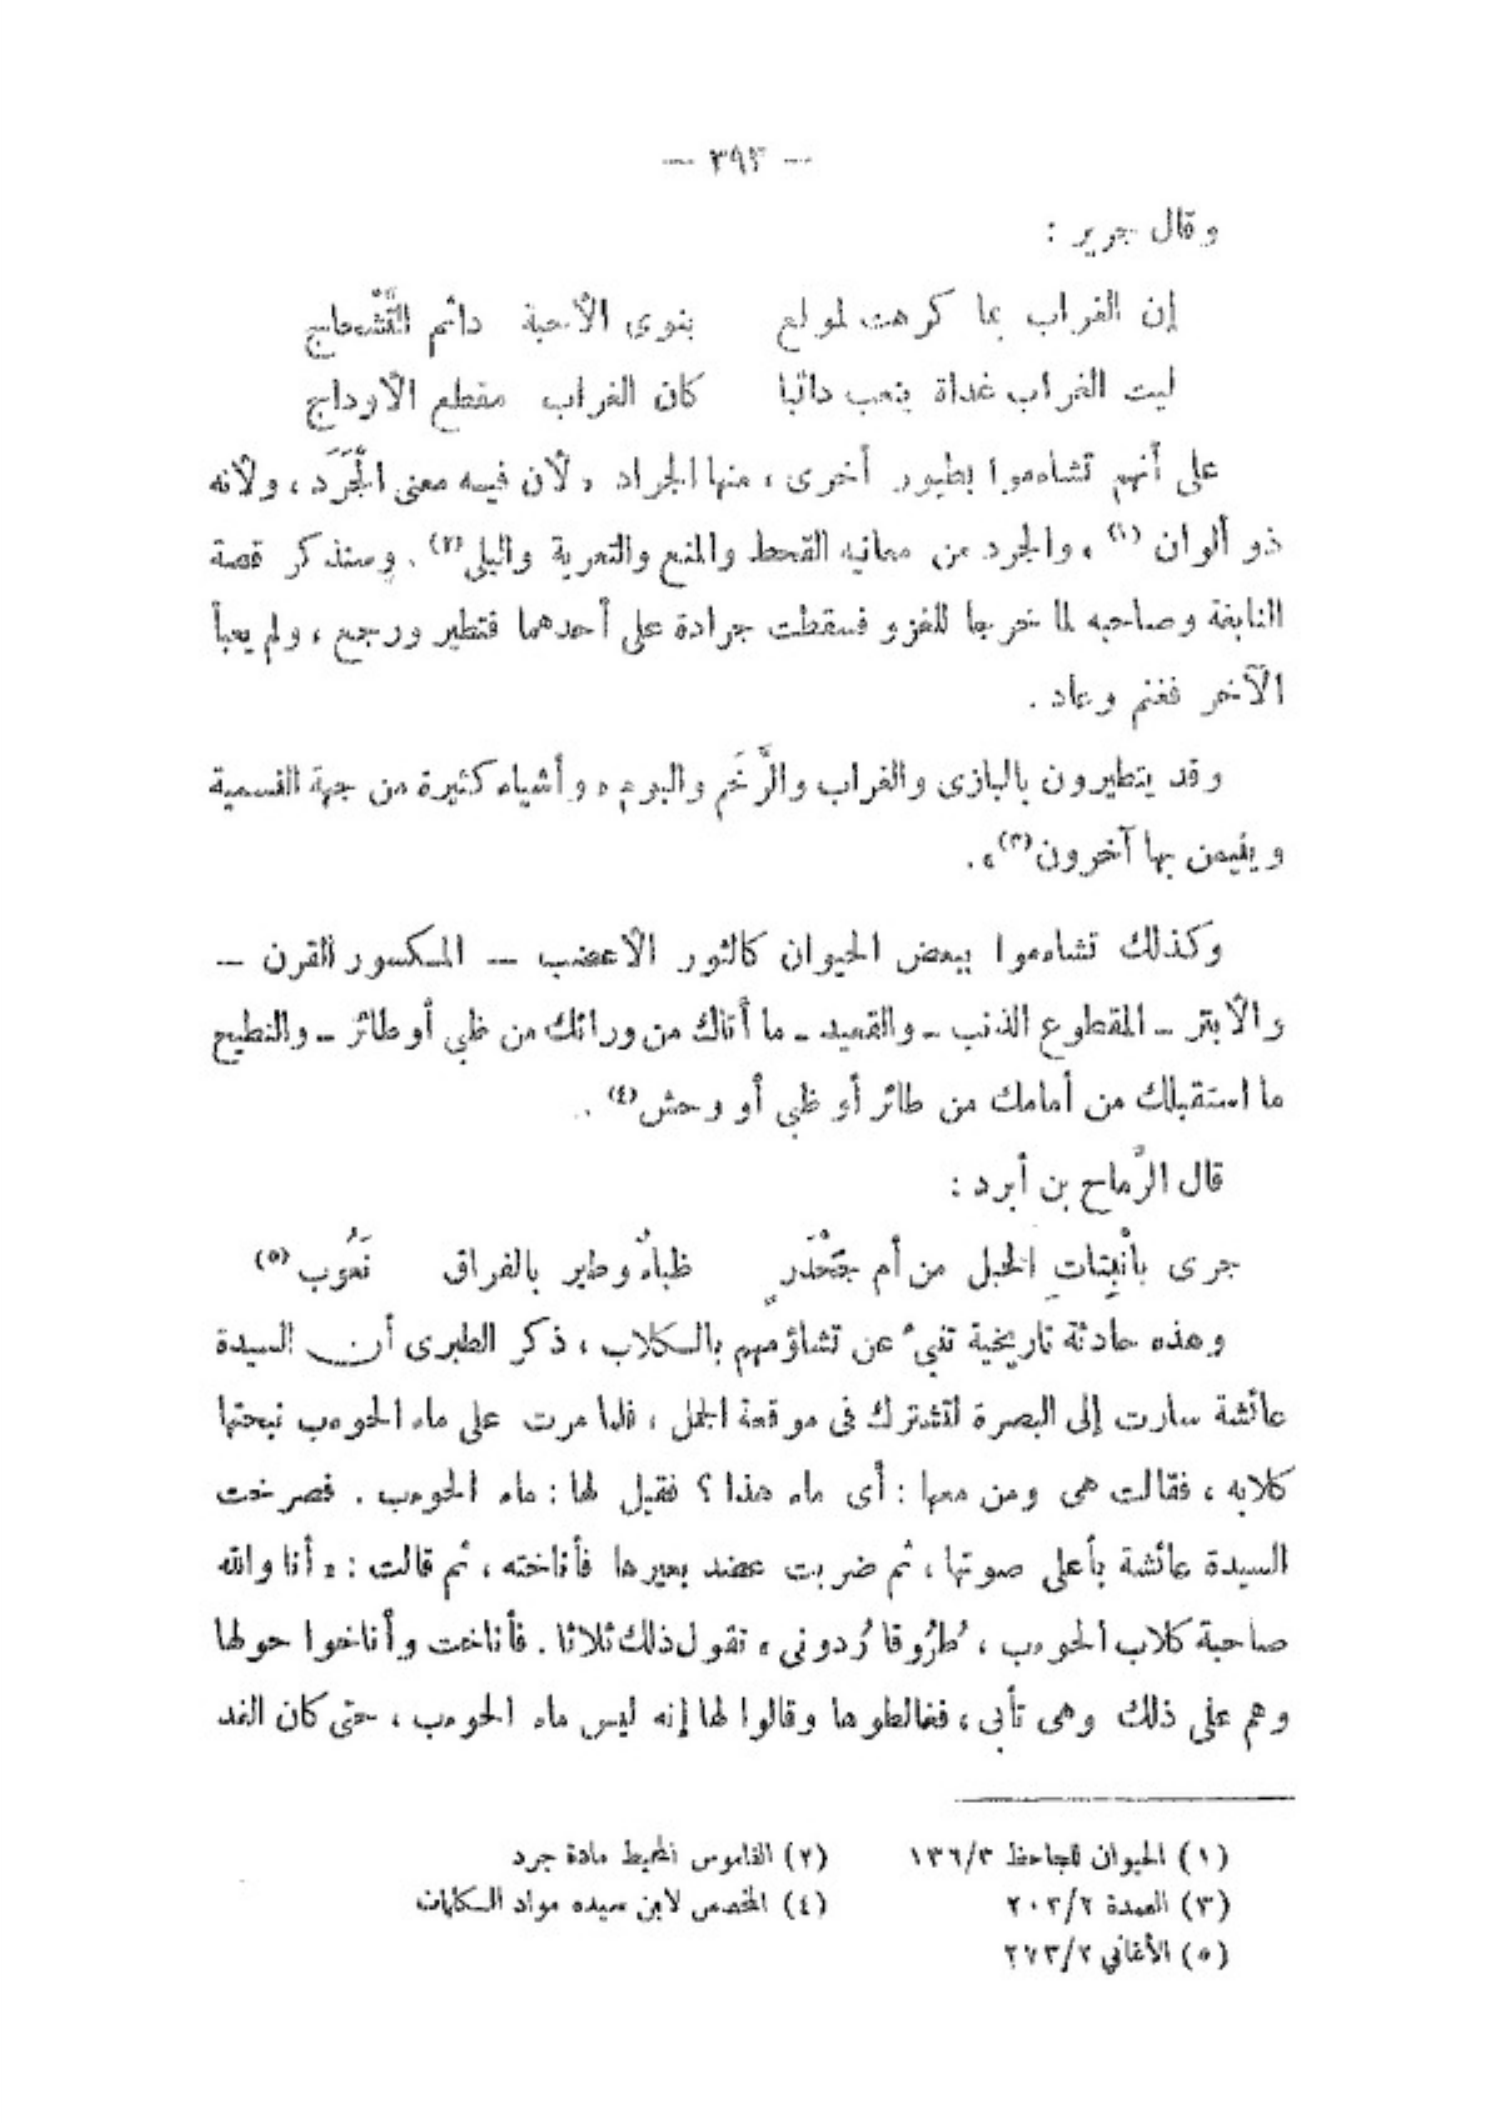 — ٣٩٣ —
وقال جرير :
إن الغراب بما كرهت لمولع    بنوى الأحبة دائم التَّشْحاج
ليت الغراب غداة ينعب دائبا    كان الغراب مقطع الأوداج
على أنهم تشاءموا بطيور أخرى ، منها الجراد « لأن فيه معنى الجَرَد ، ولأنه
ذو ألوان (١) » والجرد من معانيه القحط والمنع والتعرية والبلى (٢) . وسنذكر قصة
النابغة وصاحبه لما خرجا للغزو فسقطت جرادة على أحدهما فتطير ورجع ، ولم يعبأ
الآخر فغنم وعاد .
وقد يتطيرون بالبازى والغراب والرَّخَم والبوم « وأشياء كثيرة من جهة التسمية
ويتيمن بها آخرون (٣) » .
وكذلك تشاءموا ببعض الحيوان كالثور الأعضب – المكسور القرن –
والأبتر – المقطوع الذنب – والقعيد – ما أتاك من ورائك من ظبي أو طائر – والنطيح
ما استقبلك من أمامك من طائر أو ظبي أو وحش (٤) .
قال الرماح بن أبرد :
جرى بانْبِتاتِ الحبل من أم جَحْدَرٍ    ظباءٌ وطير بالفراق نَعُوب (٥)
وهذه حادثة تاريخية تنبئ عن تشاؤمهم بالكلاب ، ذكر الطبرى أن السيدة
عائشة سارت إلى البصرة لتشترك فى موقعة الجمل ، فلما مرت على ماء الحوءب نبحتها
كلابه ، فقالت هى ومن معها : أى ماء هذا ؟ فقيل لها : ماء الحوءب . فصرخت
السيدة عائشة بأعلى صوتها ، ثم ضربت عضد بعيرها فأناخته ، ثم قالت : « أنا والله
صاحبة كلاب الحوءب ، طُرُوقا رُدونى » تقول ذلك ثلاثا . فأناخت وأناخوا حولها
وهم على ذلك وهى تأبى ، فغالطوها وقالوا لها إنه ليس ماء الحوءب ، حتى كان الغد
(١) الحيوان للجاحظ ١٣٦/٣    (٢) القاموس المحيط مادة جرد
(٣) العمدة ٢٠٢/٢    (٤) المخصص لابن سيده مواد الكلمات
(٥) الأغاني ٢٧٣/٢